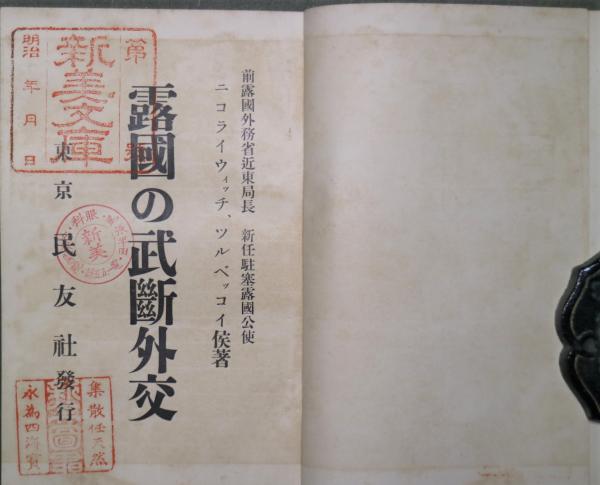 前露國外務省近東局長 新任駐塞露國公使
ニコライウィッチ、ツルベッコイ侯著
露國の武斷外交
東京 民友社發行
第 號
新美文庫
明治 年 月 日
新美
集散任天然
永為四海寶